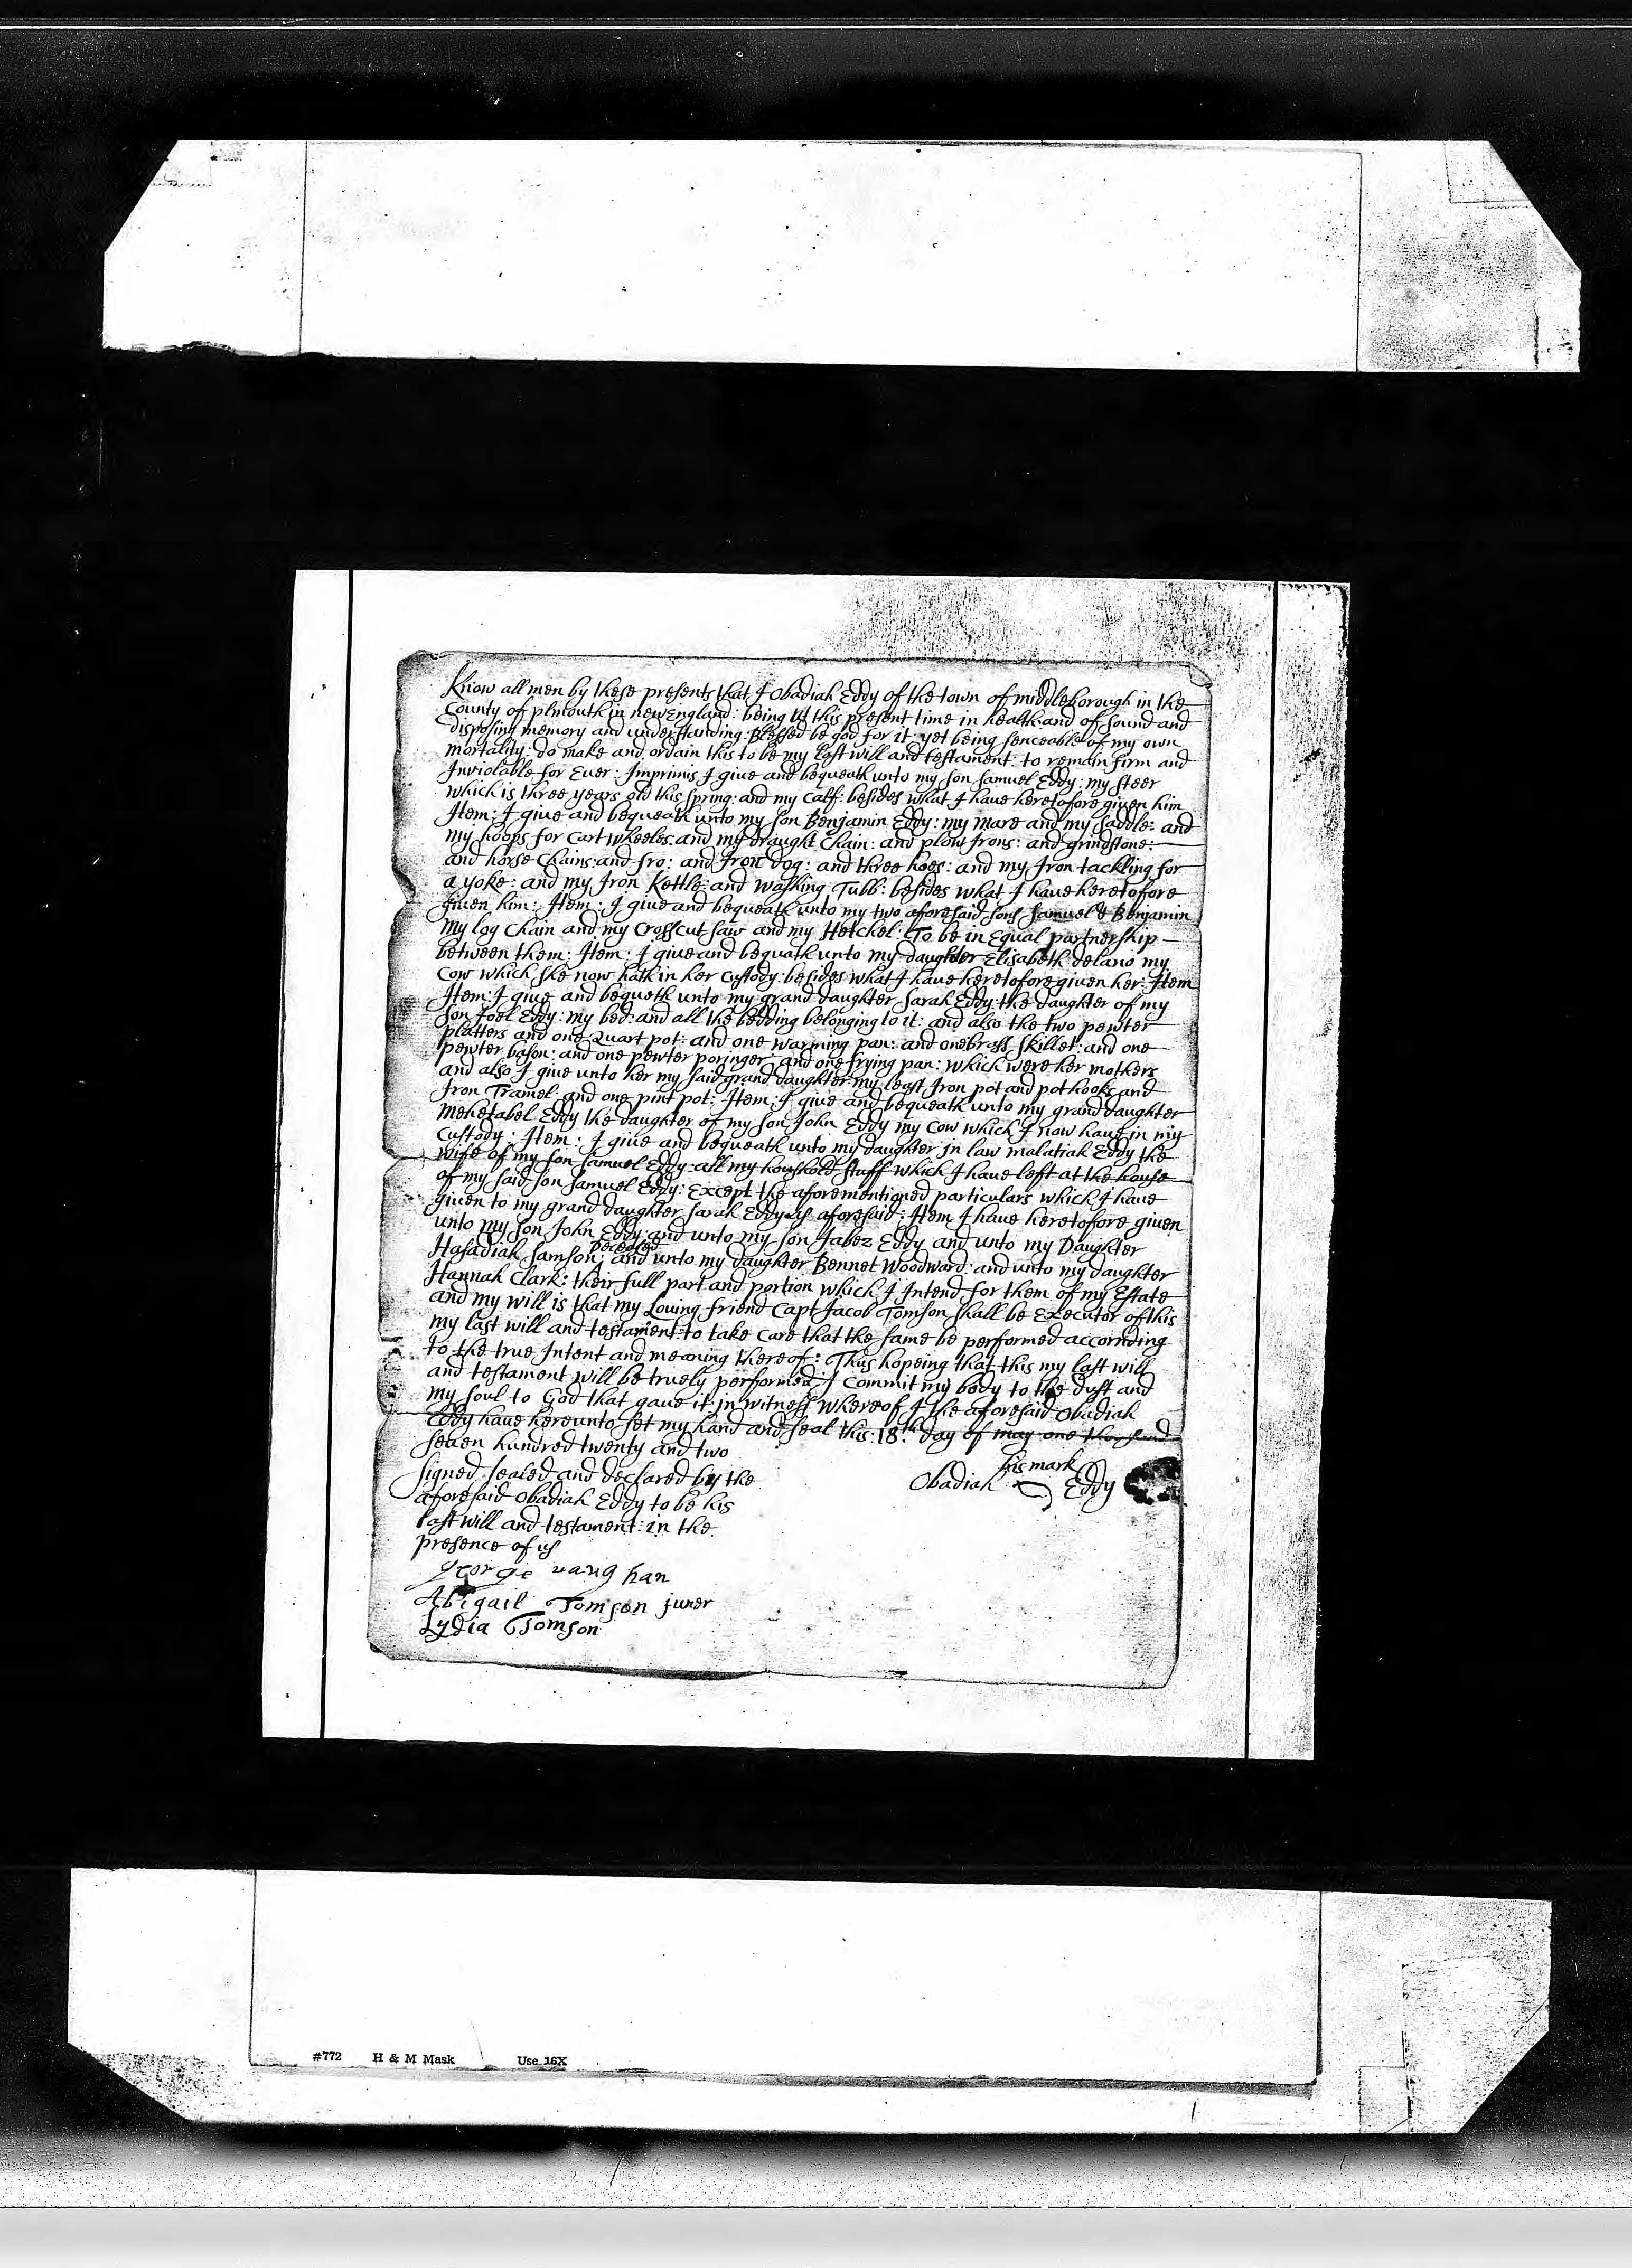 Know all men by these presents that I Obadiah Eddy of the town of middleborough in the
County of plimouth in newEngland: being at this present time in health and of sound and
disposing memory and understanding: Blessed be god for it: yet being senceable of my own
mortality: do make and ordain this to be my last will and testament: to remain firm and
Inviolable for Euer: Imprimis I giue and bequeath unto my son Samuel Eddy: my steer
which is three years old this spring: and my calf: besides what I haue heretofore given him
Item: I giue and bequeath unto my son Benjamin Eddy: my mare and my saddle: and
my hoops for cart wheeles: and my draught Chain: and plow Irons: and grindstone:
and horse Chains: and fro: and Iron dog: and three hoes: and my Iron tackling for
a yoke: and my Iron Kettle: and Washing Tubb: besides what I haue heretofore
given him: Item: I giue and bequeath unto my two aforesaid sons Samuel & Benjamin
my log Chain and my Crosscut saw and my Hetchel: To be in Equal partnership
between them: Item: I giue and bequath unto my daughter Elisabeth delano my
cow which she now hath in her custody: besides what I haue heretofore given her: Item
Item: I giue and bequeth unto my grand daughter Sarah Eddy: the daughter of my
son Joel Eddy: my bed: and all the bedding belonging to it: and also the two pewter
platters and one Quart pot: and one warming pan: and one brass skillet: and one
pewter bason: and one pewter poringer: and one frying pan: which were her mothers
and also I giue unto her my said grand daughter my least Iron pot and pot hooks and
Iron Tramel: and one pint pot: Item: I giue and bequeath unto my grand daughter
Mehetabel Eddy the daughter of my son John Eddy my cow which I now haue in my
custody: Item: I giue and bequeath unto my daughter in law malatiah Eddy the
wife of my son Samuel Eddy: all my houshold stuff which I haue left at the house
of my said son Samuel Eddy: Except the aforementioned particulars which I haue
given to my grand daughter Sarah Eddy as aforesaid: Item I haue heretofore given
unto my son John Eddy: and unto my son Jabez Eddy and unto my Daughter
Deceased
Hasadiah Samson: and unto my daughter Bennet Woodward: and unto my daughter
Hannah Clark: their full part and portion which I Intend for them of my Estate
and my will is that my Loving friend Capt Jacob Tomson shall be Executor of this
my last will and testament: to take care that the same be performed accornding
to the true Intent and meaning thereof: Thus hopeing that this my last will
and testament will be truely performed: I commit my body to the dust and
my soul to God that gaue it: in witness whereof I the aforesaid Obadiah
Eddy haue hereunto set my hand and seal this: 18:th day of may one thousand
seuen hundred twenty and two
his mark
Obadiah Eddy
signed sealed and declared by the
aforesaid Obadiah Eddy to be his
last will and testament: in the
presence of us
george vaughan
Abigail Tomson juner
Lydia Tomson
#772 H & M Mask Use 16X